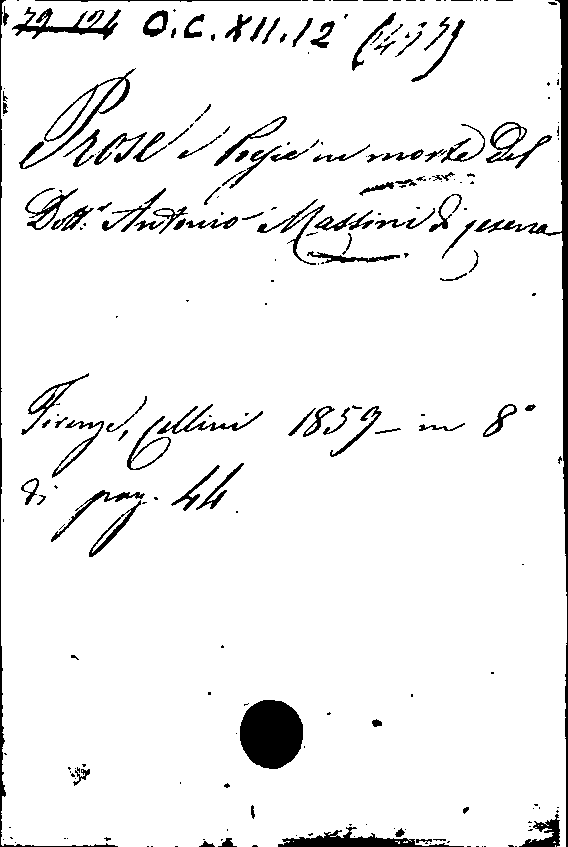 79. 124 O.C. XII.12 (1437)
Prose e Poesie in morte del
Dott.r Antonio Massini di Cesena
Firenze, Cellini 1859 - in 8°
di pag. 44